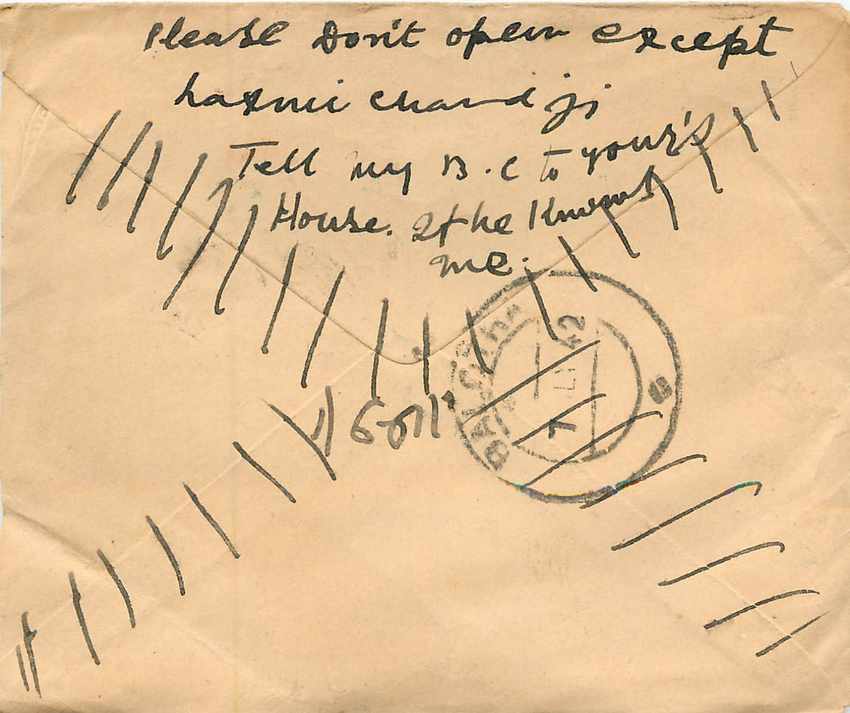 Please Don't open except
Laxmi Chand ji
Tell my B.C to your's
House. If he Knows
me.